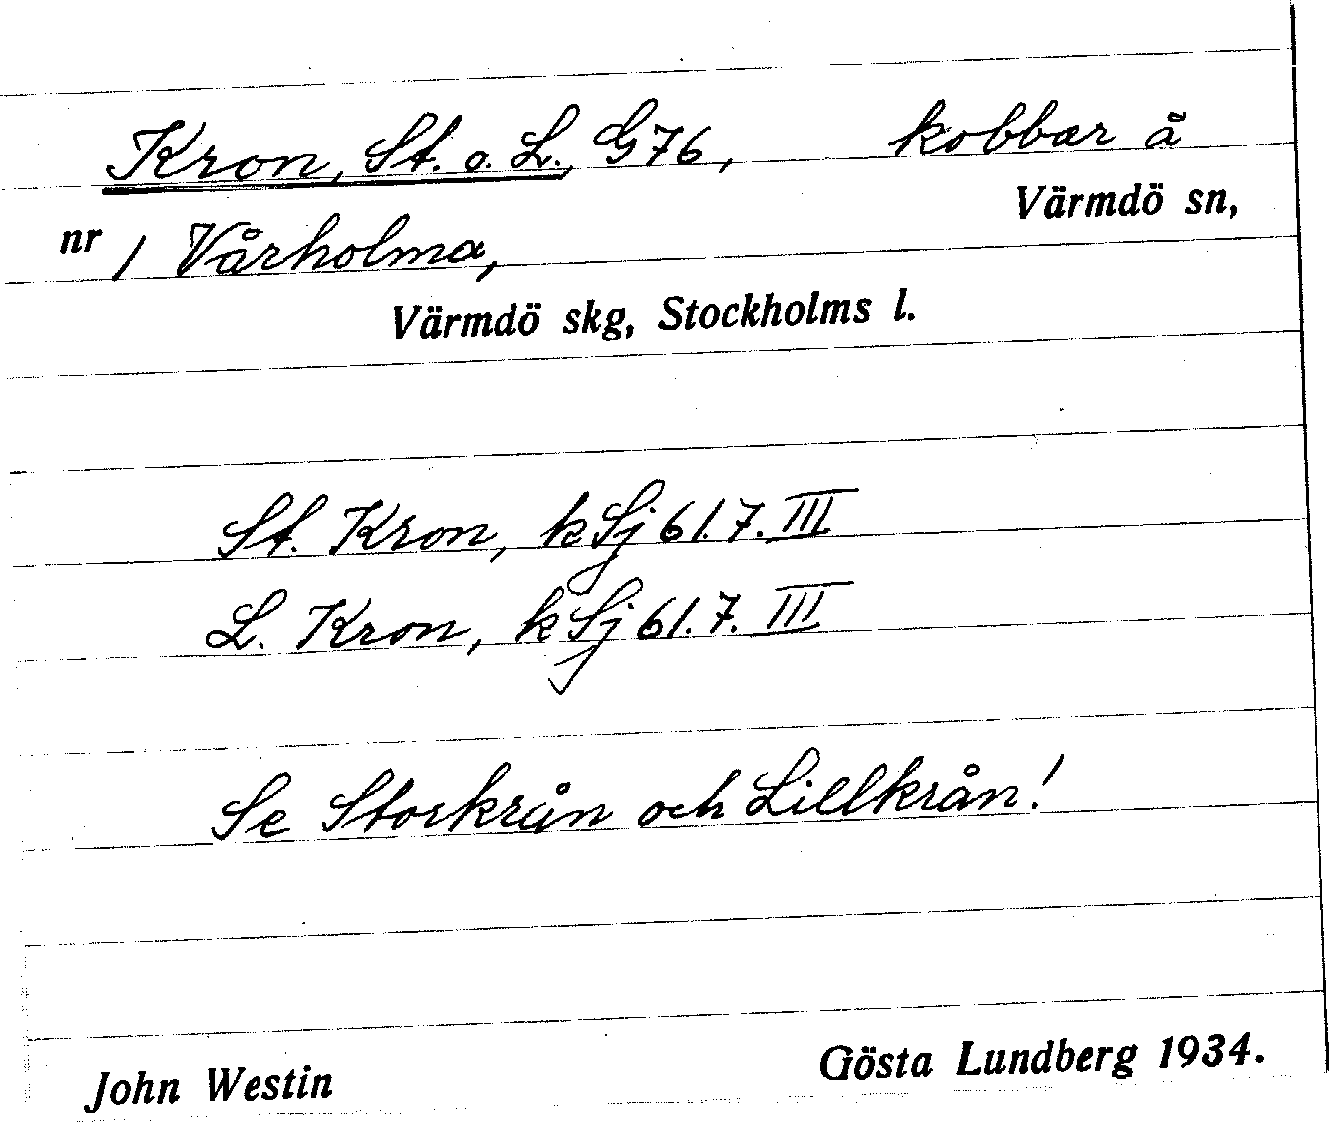 Kron, St. o. L., G76, kobbar å
Värmdö sn,
nr 1 Vårholma,
Värmdö skg, Stockholms l.
St. Kron, k Sj 61.7. III
L. Kron, k Sj 61.7. III
Se Storkrån och Lillkrån!
John Westin Gösta Lundberg 1934.